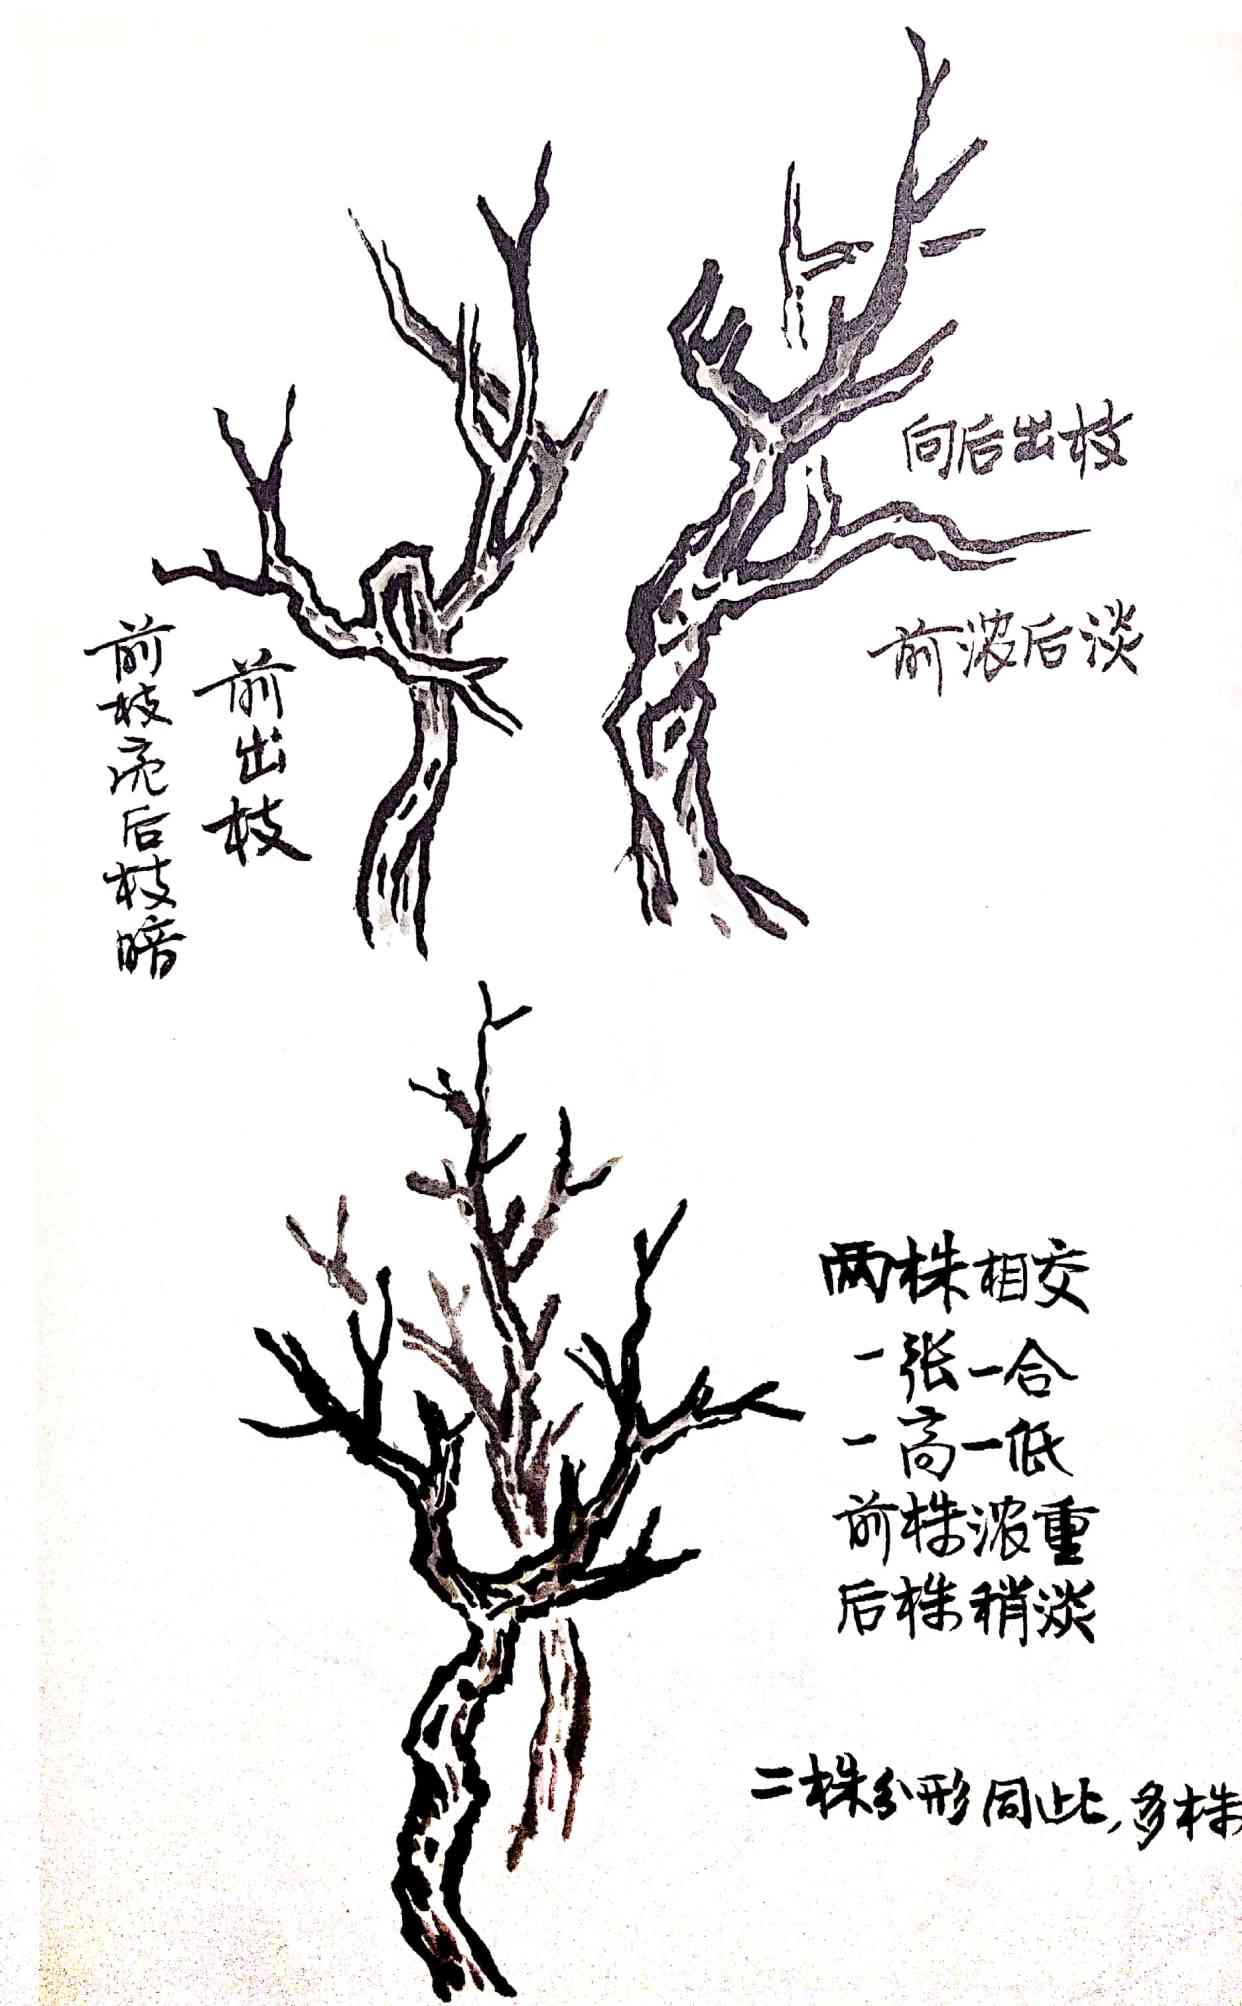 向后出枝
前浓后淡
前出枝
前枝亮后枝暗
两株相交
一张一合
一高一低
前株浓重
后株稍淡
二株分形同此，多株